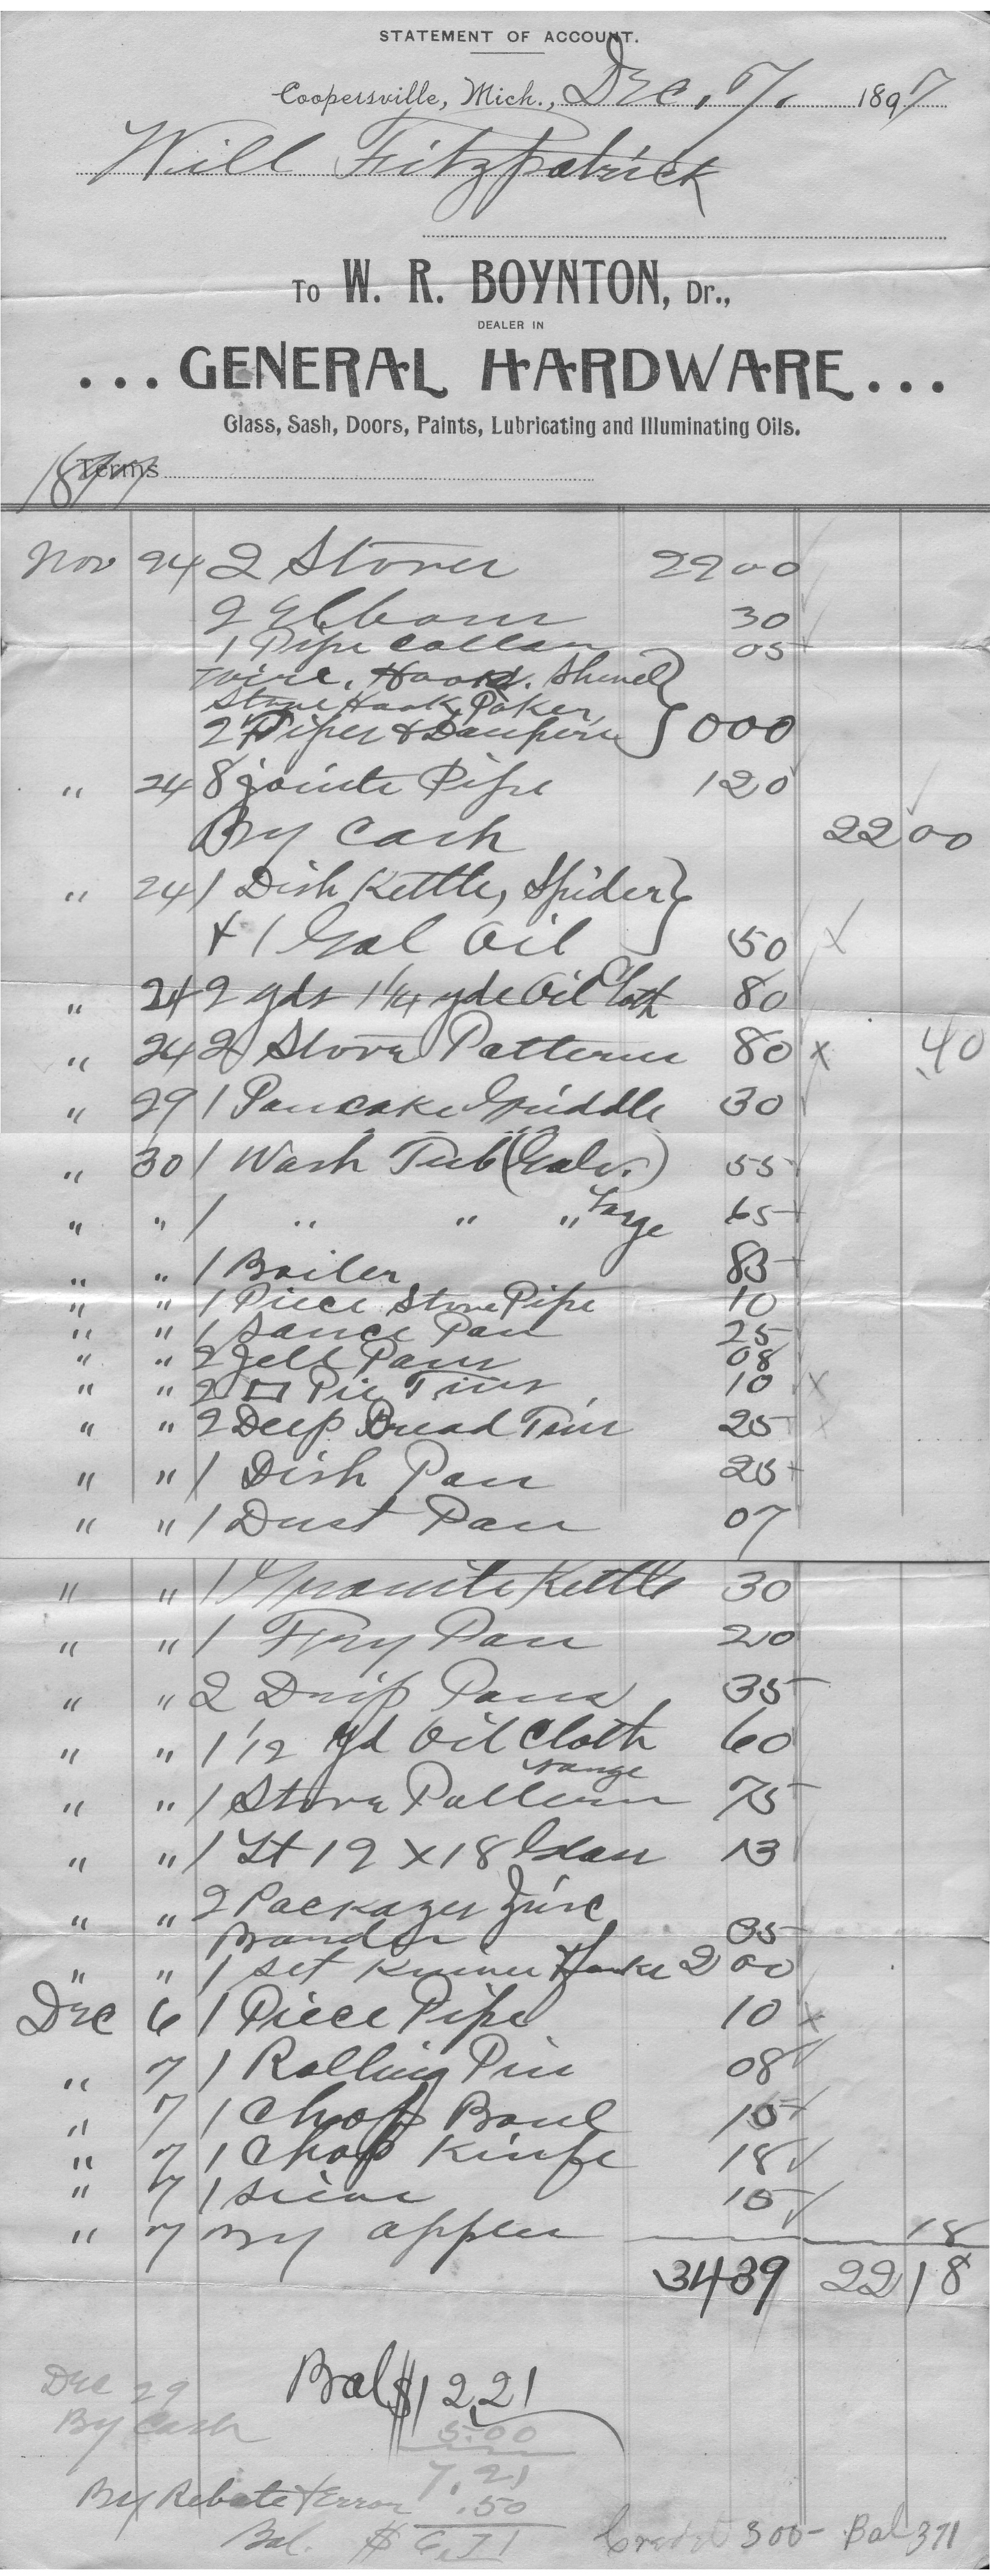 STATEMENT OF ACCOUNT.
Coopersville, Mich., Dec. 7. 1897
Will Fitzpatrick
To W. R. BOYNTON, Dr.,
DEALER IN
... GENERAL HARDWARE ...
Glass, Sash, Doors, Paints, Lubricating and Illuminating Oils.
Terms
1897
Nov 24 2 Stoves 22 00
2 Elbows 30
1 Pipe Collar 05
Wire, Hooks, Shovel
Stove Hook, Poker,
2 Pipes & Dampers } 000
" 24 8 joints Pipe 1 20
By Cash 22 00
" 24 1 Dish Kettle, Spider
& 1 Gal Oil } 50 x
" 24 2 yds 1 1/4 yde Oil Cloth 80
" 24 2 Stove Patterns 80 x .40
" 29 1 Pancake Griddle 30
" 30 1 Wash Tub (Galv.) 55
" " 1 " " " Large 65
" " 1 Boiler 83
" " 1 Piece Stove Pipe 10
" " 1 Sauce Pan 25
" " 2 Jell Pans 08
" " 2 □ Pie Tins 10 x
" " 2 Deep Bread Tins 25 x
" " 1 Dish Pan 25
" " 1 Dust Pan 07
" " 1 Granite Kettle 30
" " 1 Fry Pan 20
" " 2 Drip Pans 35
" " 1 1/2 yd Oil Cloth 60
" " 1 Stove Pattern large 75
" " 1 Lt 12 x 18 Glass 13
" " 2 Packages Zinc
35
" " 1 Set Knives Forks 2 00
Dec 6 1 Piece Pipe 10 x
" 7 1 Rolling Pin 08
" 7 1 Chop Bowl 15
" 7 1 Chop Knife 18
" 7 1 Sieve 15
" 7 By apples 18
34 39 22 18
Bal $12.21
Dec 29
By Cash 5.00
7.21
By Rebate & Error .50
Bal. $ 6.71 Credit 300- Bal 371